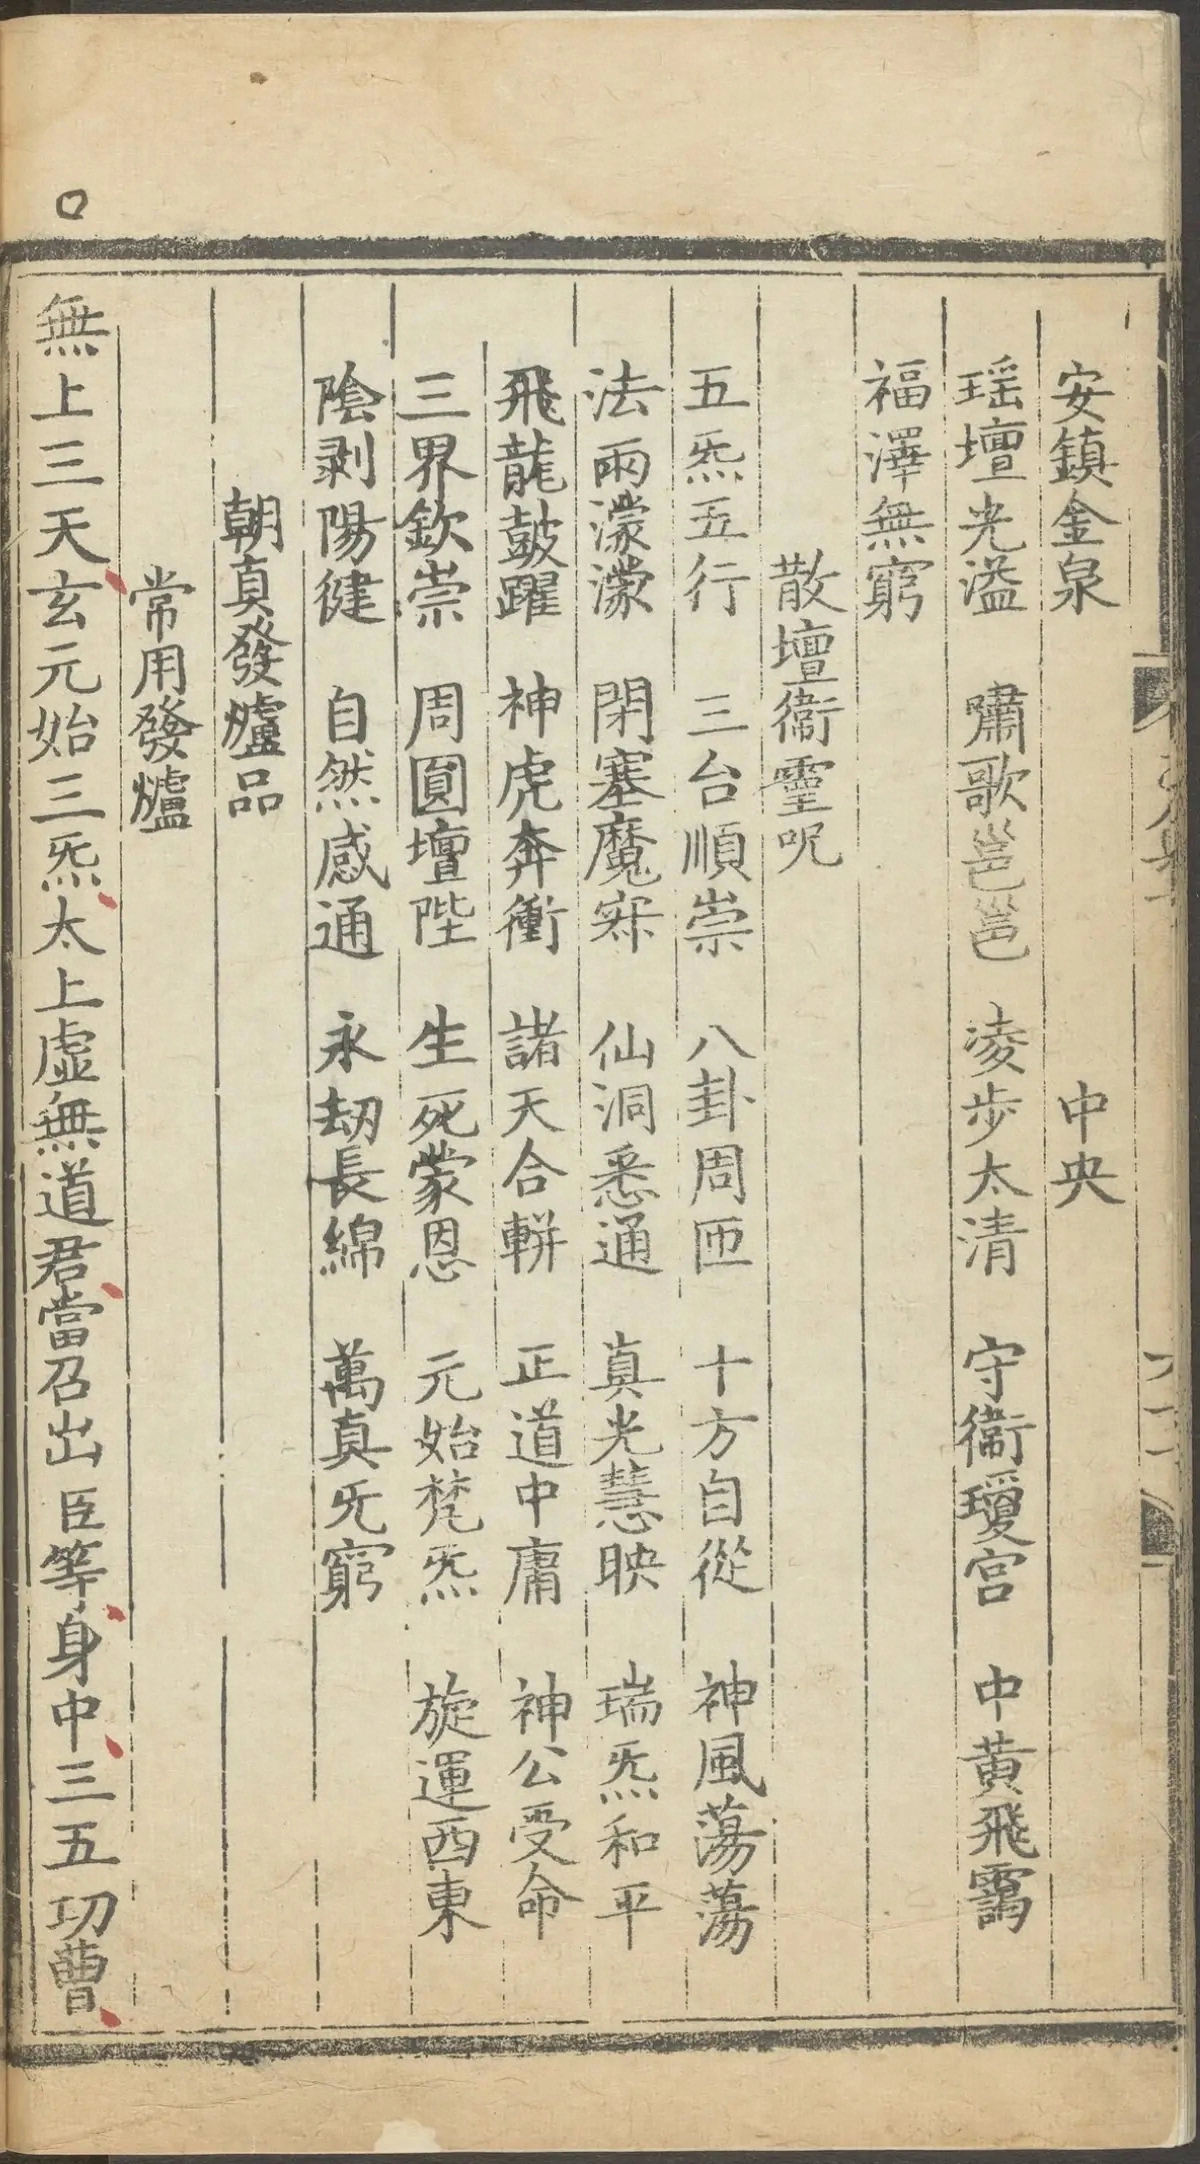 安鎮金泉　中央
瑶壇光溢　嘯歌邕邕　凌步太清　守衞瓊宫　中黄飛靄
福澤無窮
散壇衞靈呪
五炁五行　三台順崇　八卦周匝　十方自從　神風蕩蕩
法雨濛濛　閉塞魔寀　仙洞悉通　真光慧映　瑞炁和平
飛龍皷躍　神虎奔衝　諸天合軿　正道中庸　神公受命
三界欽崇　周圓壇陛　生死蒙恩　元始梵炁　旋運西東
陰剥陽健　自然感通　永劫長綿　萬真旡窮
朝真發爐品
常用發爐
無上三天玄元始三炁太上虚無道君當召出臣等身中三五功曹